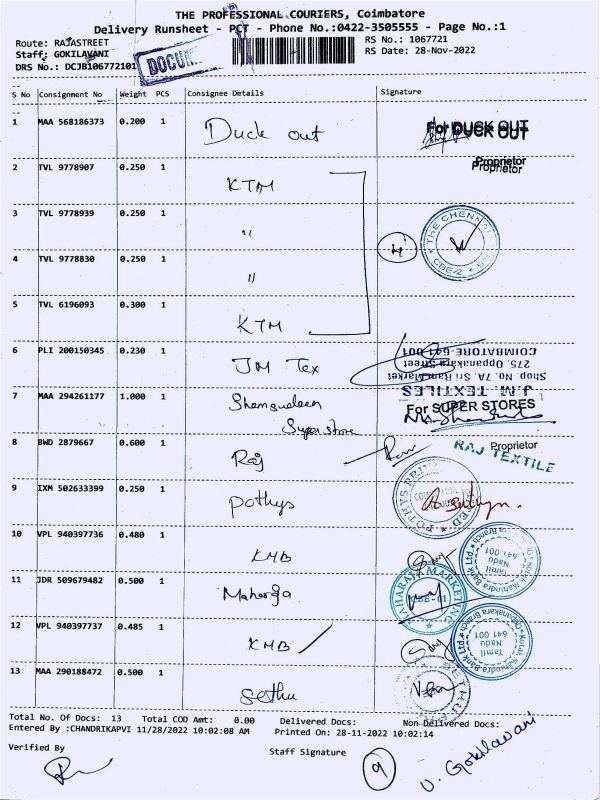 THE PROFESSIONAL COURIERS, Coimbatore
Delivery Runsheet - PCT - Phone No.:0422-3505555 - Page No.:1
Route: RAJASTREET
RS No.: 1067721
Staff: GOKILAVANI
RS Date: 28-Nov-2022
DRS No.: DCJB106772101
DOCUM
S No Consignment No Weight PCS Consignee Details Signature
1 MAA 568186373 0.200 1 Duck out For DUCK OUT
Proprietor
2 TVL 9778907 0.250 1 KTM
3 TVL 9778939 0.250 1 " THE CHENNAI
4 TVL 9778830 0.250 1 " CBE-2
5 TVL 6196093 0.300 1 KTM
6 PLI 200150345 0.230 1 JM Tex
J.M. TEXTILES
Shop No. 7A, Sri Ram Market
275, Oppanakara Street
COIMBATORE-641 001
7 MAA 294261177 1.000 1 Shamsudeen
Super store
For SUPER STORES
Proprietor
8 BWD 2879667 0.600 1 Raj RAJ TEXTILE
9 IXM 502633399 0.250 1 Pothys POTHYS
10 VPL 940397736 0.480 1 KMB
Kotak Mahindra Bank Ltd
Oppanakara Branch
Tamil
Nadu
641 001
11 JDR 509679482 0.500 1 Maharaja MAHARAJA MARKETING
CBE-01
12 VPL 940397737 0.485 1 KMB
Kotak Mahindra Bank Ltd
Oppanakara Branch
Tamil
Nadu
641 001
13 MAA 290188472 0.500 1 Sethu
Total No. Of Docs: 13 Total COD Amt: 0.00 Delivered Docs: Non Delivered Docs:
Entered By :CHANDRIKAPVI 11/28/2022 10:02:08 AM Printed On: 28-11-2022 10:02:14
Verified By Staff Signature
9
V. Gokilavani